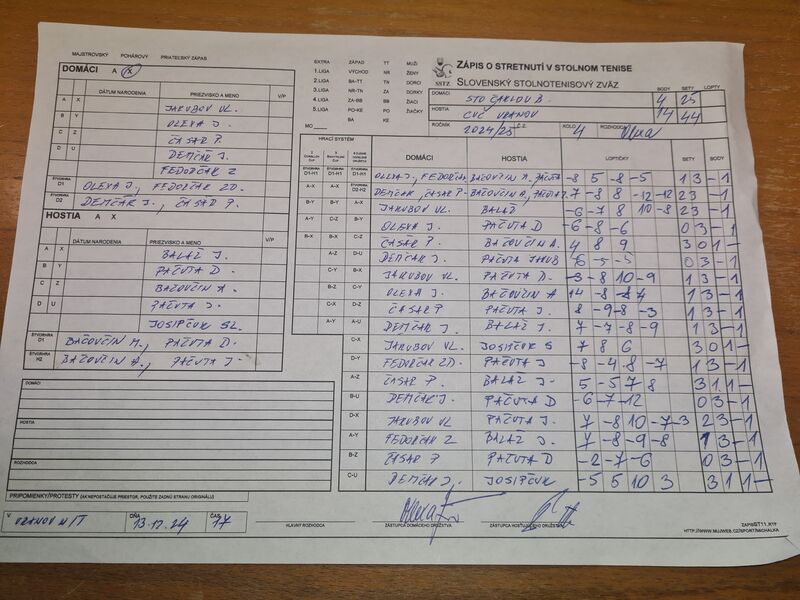 MAJSTROVSKÝ POHÁROVÝ PRIATEĽSKÝ ZÁPAS
DOMÁCI A X
DÁTUM NARODENIA PRIEZVISKO A MENO V/P
A X JAKUBOV VL.
B Y OLEXA J.
C Z ČASAR P.
D U DEMČÁR J.
FEDORČÁR Z
ŠTVORHRA D1 OLEXA J., FEDORČÁR ZD.
ŠTVORHRA D2 DEMČÁR J., ČASAR P.
HOSTIA A X
DÁTUM NARODENIA PRIEZVISKO A MENO V/P
A X BALÁŽ J.
B Y PAČUTA D.
C Z BAČOVČIN A.
D U PAČUTA J.
JOSIPČUK SL.
ŠTVORHRA D1 BAČOVČIN M., PAČUTA D.
ŠTVORHRA H2 BAČOVČIN A., PAČUTA J.
DOMÁCI
HOSTIA
ROZHODCA
PRIPOMIENKY/PROTESTY (AK NEPOSTAČUJE PRIESTOR, POUŽITE ZADNÚ STRANU ORIGINÁLU)
V VRANOV N/T DŇA 13.11.24 ČAS 17
EXTRA ZÁPAD TT MUŽI
1.LIGA VÝCHOD NR ŽENY
2.LIGA BA-TT TN DORCI
3.LIGA NR-TN ZA DORKY
4.LIGA ZA-BB BB ŽIACI
5.LIGA PO-KE PO ŽIAČKY
BA KE
MO
SSTZ
ZÁPIS O STRETNUTÍ V STOLNOM TENISE
SLOVENSKÝ STOLNOTENISOVÝ ZVÄZ
BODY SETY LOPTY
DOMÁCI STO ČAKLOV B 4 25
HOSTIA CVČ VRANOV 14 44
ROČNÍK 2024/25 Č.Z. KOLO 4 ROZHODCA
HRACÍ SYSTÉM
DOMÁCI HOSTIA LOPTIČKY SETY BODY
D1-H1 D1-H1 D1-H1 OLEXA J., FEDORČÁR BAČOVČIN M., PAČUTA -8 5 -8 -5 1 3 -1
A-X A-X D2-H2 DEMČÁR, ČASAR P. BAČOVČIN A., PAČUTA J. 7 -8 8 -12 -12 2 3 -1
B-Y B-Y A-X JAKUBOV VL. BALÁŽ -6 -7 8 10 -8 2 3 -1
A-Y C-Z B-Y OLEXA J. PAČUTA D -6 -8 -6 0 3 -1
B-X B-X C-Z ČASÁR P. BAČOVČIN A. 4 8 9 3 0 1 -
A-Z D-U DEMČÁR J. PAČUTA JAKUB -6 -5 -5 0 3 -1
C-Y B-X JAKUBOV VL. PAČUTA D. -3 -8 10 -9 1 3 -1
B-Z C-Y OLEXA J. BAČOVČIN A 14 -8 -8 1 3 -1
C-X D-Z ČASAR P PAČUTA J. 8 -9 -8 -3 1 3 -1
A-Y A-U DEMČÁR J. BALÁŽ J. 7 -7 -8 -9 1 3 -1
C-X JAKUBOV VL. JOSIPČUK S 7 8 6 3 0 1 -
D-Y FEDORČÁR ZD. PAČUTA J. -8 -4 8 -7 1 3 -1
A-Z ČASAR P. BALÁŽ J. 5 -5 7 8 3 1 1 -
B-U DEMČÁR J. PAČUTA D -6 -7 -12 0 3 -1
D-X JAKUBOV VL PAČUTA J. 7 -8 10 -7 -3 2 3 -1
A-Y FEDORČÁR Z BALÁŽ J. 7 -8 -9 -8 1 3 -1
B-Z ČASAR P PAČUTA D -2 -7 -6 0 3 -1
C-U DEMČÁR J. JOSIPČUK -5 5 10 3 3 1 1 -
HLAVNÝ ROZHODCA ZÁSTUPCA DOMÁCEHO DRUŽSTVA ZÁSTUPCA HOSŤUJÚCEHO DRUŽSTVA
ZAPISST11.RTF
HTTP://WWW.MUJWEB.CZ/SPORT/MICHALKA